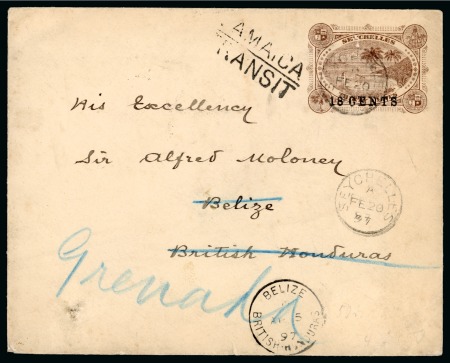 JAMAICA
TRANSIT
SEYCHELLES
18 CENTS
His Excellency
Sir Alfred Moloney
Belize
British Honduras
Grenada
SEYCHELLES
A
FE 20
97
BELIZE
5
97
BRITISH HONDURAS